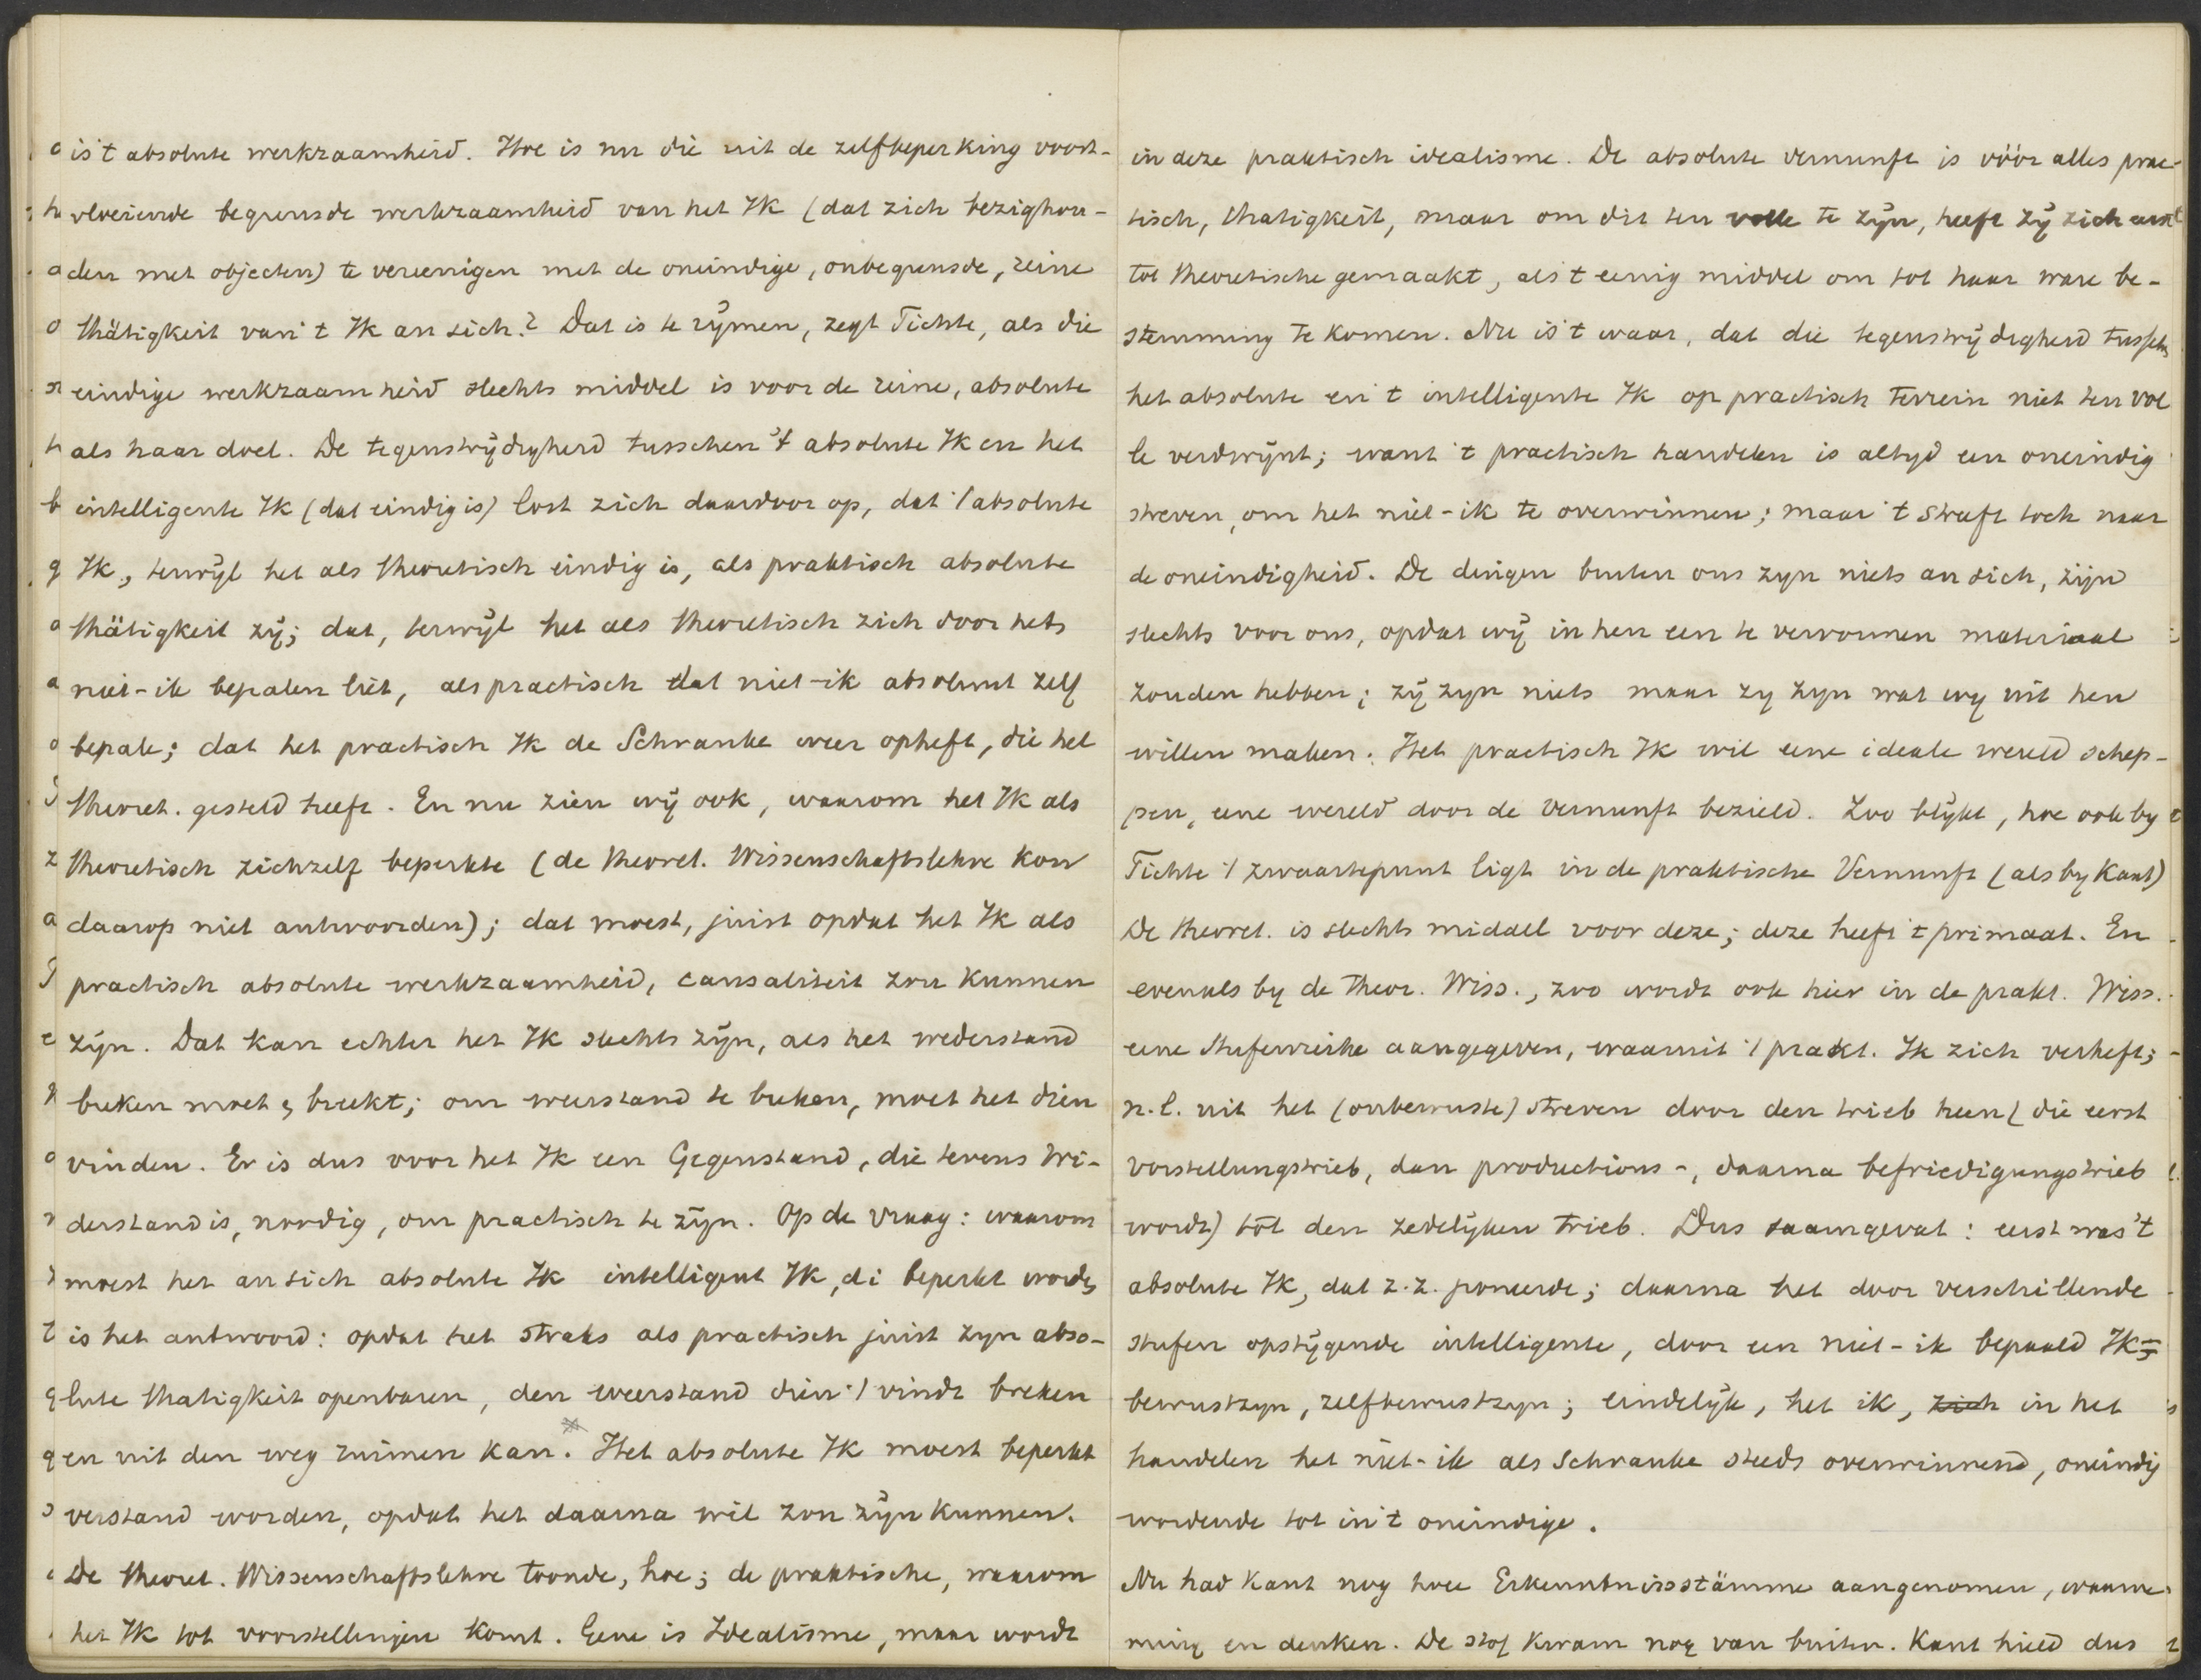 is 't absolute werkzaamheid. Hoe is nu die uit de zelfbeperking voort-
vloeiende begrensde werkzaamheid van het Ik (dat zich bezighou-
den met objecten) te vereenigen met de oneindige, onbegrensde, reine
thätigkeit van 't Ik an sich? Dat is te rijmen, zegt Fichte, als die
eindige werkzaamheid slechts middel is voor de reine, absolute
als haar doel. De tegenstrijdigheid tusschen 't absolute Ik en het
intelligente Ik (dat eindig is) lost zich daardoor op, dat 't absolute
Ik, terwijl het als theoretisch eindig is, als praktisch absolute
thätigkeit zij; dat, terwijl het als theoretisch zich door het
niet-ik bepalen liet, als practisch dat niet-ik absoluut zelf
bepale; dat het practisch Ik de Schranke weer opheft, die het
theoret. gesteld heeft. En nu zien wij ook, waarom het Ik als
theoretisch zichzelf beperkte (de theoret. Wissenschaftslehre kon
daarop niet antwoorden); dat moest, juist opdat het Ik als
practisch absolute werkzaamheid, causaliteit zou kunnen
zijn. Dat kan echter het Ik slechts zijn, als het wederstand
breken moet & breekt; om weerstand te breken, moet het dien
vinden. Er is dus voor het Ik een Gegenstand, die tevens Wi-
derstand is, noodig, om practisch te zijn. Op de vraag: waarom
moest het an sich absolute Ik intelligent Ik, di beperkt worden
is het antwoord: opdat het straks als practisch juist zyn abso-
lute thatigkeit openbaren, den weerstand dien 't vindt breken
en uit den weg ruimen kan. Het absolute Ik moest beperkt
verstand worden, opdat het daarna wil zou zijn kunnen.
De theoret. Wissenschaftslehre toonde, hoe; de praktische, waarom
het Ik tot voorstellingen komt. Gene is Idealisme, maar wordt
in deze praktisch idealisme. De absolute vernunft is vóór alles prac-
tisch, thatigkeit, maar om dit ten volle te zijn, heeft zij zich eerst
tot theoretische gemaakt, als 't eenig middel om tot haar ware be-
stemming te komen. Nu is 't waar, dat die tegenstrijdigheid tusschen
het absolute en 't intelligente Ik op practisch terrein niet ten vol
le verdwijnt; want 't practisch handelen is altyd een oneindig
streven, om het niet-ik te overwinnen; maar 't streeft toch naar
de oneindigheid. De dingen buiten ons zyn niets an sich, zijn
slechts voor ons, opdat wij in hen een te vervormen materiaal
zouden hebben; zij zyn niets maar zy zyn wat wy uit hen
willen maken. Het practisch Ik wil eene ideale wereld schep-
pen, eene wereld door de Vernunft bezield. Zoo blijkt, hoe ook by
Fichte 't zwaartepunt ligt in de praktische Vernunft (als by Kant)
De theoret. is slechts middel voor deze; deze heeft 't primaat. En
evenals by de Theor. Wiss., zoo wordt ook hier in de prakt. Wiss.
eene Stufenreihe aangegeven, waaruit 't prakt. Ik zich verheft;
n.l. uit het (onbewuste) streven door den trieb heen (die eerst
vorstellungstrieb, dan productions-, daarna befriedigungstrieb
wordt) tot den zedelijken trieb. Dus saamgevat: eerst was 't
absolute Ik, dat z.z. poneerde; daarna het door verschillende
stufen opstijgende intelligente, door een niet-ik bepaald Ik =
bewustzyn, zelfbewustzyn; eindelijk, het ik, zich in het
handelen het niet-ik als Schranke steeds overwinnend, oneindig
wordende tot in 't oneindige.
Nu had Kant nog twee Erkenntnissstämme aangenomen, waarne-
ming en denken. De stof kwam nog van buiten. Kant hield dus